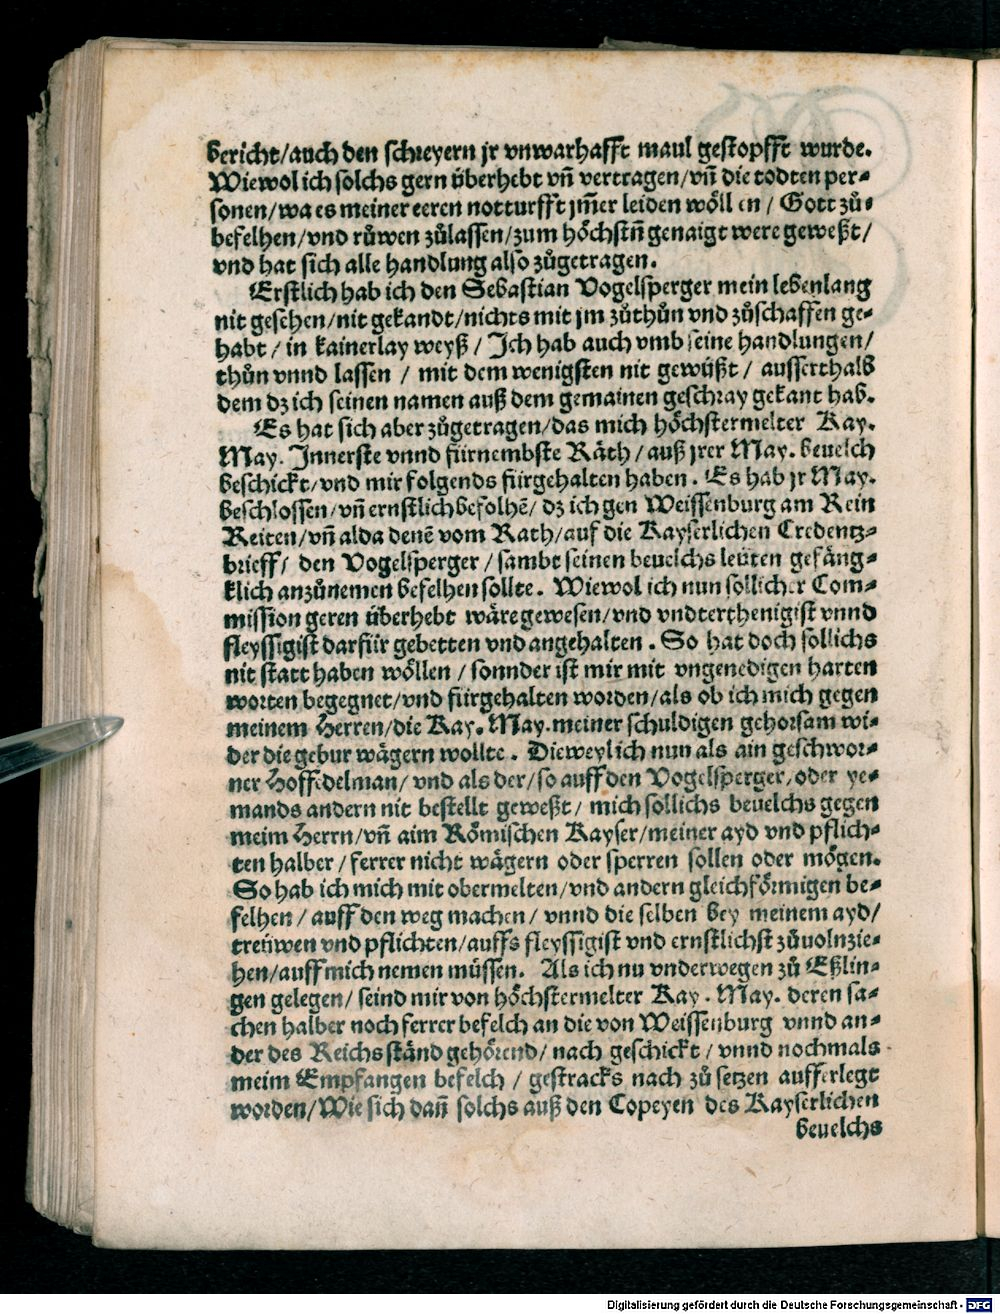 bericht/auch den schreyern jr vnwarhafft maul gestopfft wurde.
Wiewol ich solchs gern überhebt vñ vertragen/vñ die todten per⸗
sonen/wa es meiner eeren notturfft jm̃er leiden wöllen/ Gott zů⸗
befelhen/vnd růwen zůlassen/zum höchstñ genaigt were geweßt/
vnd hat sich alle handlung also zůgetragen.
Erstlich hab ich den Sebastian Vogelsperger mein lebenlang
nit gesehen/nit gekandt/nichts mit jm zůthůn vnd zůschaffen ge⸗
habt / in kainerlay weyß / Ich hab auch vmb seine handlungen/
thůn vnnd lassen / mit dem wenigsten nit gewüßt / ausserthalb
dem dz ich seinen namen auß dem gemainen geschray gekant hab.
Es hat sich aber zůgetragen/das mich höchstermelter Kay.
May. Innerste vnnd fürnembste Räth / auß jrer May. beuelch
beschickt/vnd mir folgends fürgehalten haben. Es hab jr May.
beschlossen/vñ ernstlich befolhẽ/ dz ich gen Weissenburg am Rein
Reiten/vñ alda denẽ vom Rath/auf die Kayserlichen Credentz⸗
brieff/ den Vogelsperger / sambt seinen beuelchs leüten gefäng⸗
klich anzůnemen befelhen sollte. Wiewol ich nun sollicher Com⸗
mission geren überhebt wäre gewesen/vnd vndterthenigist vnnd
fleyssigist darfür gebetten vnd angehalten. So hat doch sollichs
nit statt haben wöllen / sonnder ist mir mit vngenedigen harten
worten begegnet/vnd fürgehalten worden/als ob ich mich gegen
meinem Herren/die Kay. May. meiner schuldigen gehorsam wi⸗
der die gebur wägern wollte. Dieweyl ich nun als ain geschwor⸗
ner Hoff Edelman/ vnd als der/so auff den Vogelsperger, oder ye⸗
mands andern nit bestellt geweßt/ mich sollichs beuelchs gegen
meim Herrn/vñ aim Römischen Kayser/meiner ayd vnd pflich⸗
ten halber / ferrer nicht wägern oder sperren sollen oder mögen.
So hab ich mich mit obermelten/vnd andern gleichförmigen be⸗
felhen / auff den weg machen / vnnd die selben bey meinem ayd/
treüwen vnd pflichten/auffs fleyssigist vnd ernstlichst zůuolnzie⸗
hen/auff mich nemen müssen. Als ich nu vnderwegen zů Eßlin⸗
gen gelegen/ seind mir von höchstermelter Kay. May. deren sa⸗
chen halber noch ferrer befelch an die von Weissenburg vnnd an⸗
der des Reichs ständ gehörend/ nach geschickt / vnnd nochmals
meim Empfangen befelch / gestracks nach zů setzen aufferlegt
worden/Wie sich dañ solchs auß den Copeyen des Kayserlichen
beuelchs
Digitalisierung gefördert durch die Deutsche Forschungsgemeinschaft - DFG